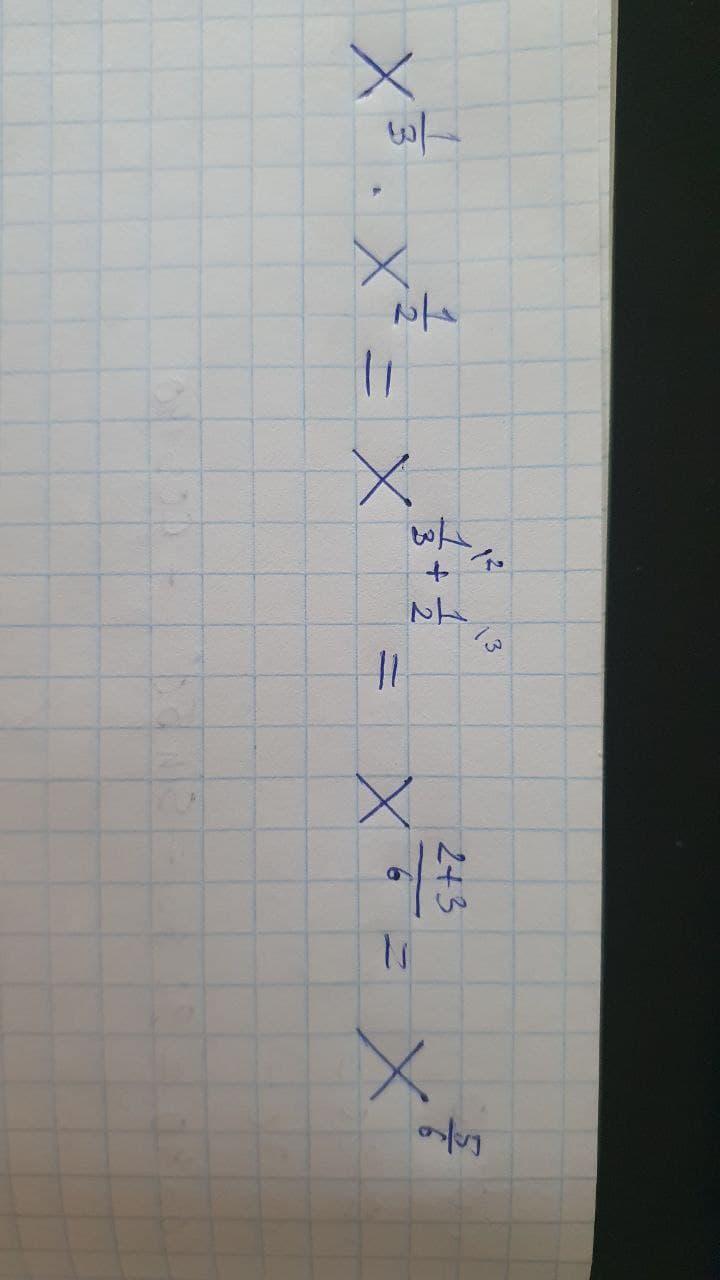 x^{\frac{1}{3}} · x^{\frac{1}{2}} = x^{\frac{1}{3}^{\backslash 2} + \frac{1}{2}^{\backslash 3}} = x^{\frac{2+3}{6}} = x^{\frac{5}{6}}